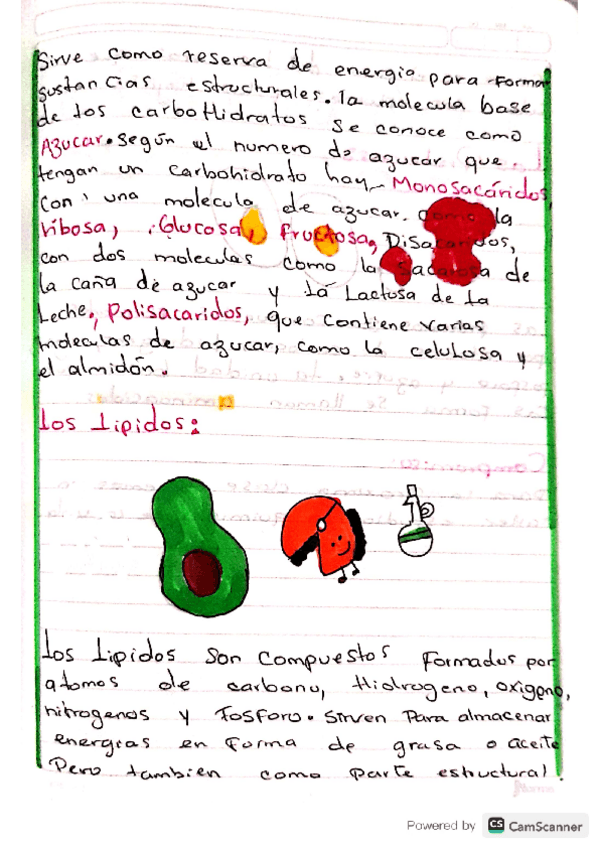 Sirve como reserva de energia para forma
sustancias estructurales. la molecula base
de los carboHidratos se conoce como
Azucar. según el numero de azucar que.
tengan un carbohidrato hay Monosacáridos,
Con una molecula de azucar. como la
ribosa, Glucosa, fructosa, Disacaridos,
con dos moleculas como la sacarosa de
la caña de azucar y la Lactosa de la
Leche, Polisacaridos, que contiene varias
moleculas de azucar, como la celulosa y
el almidón.
Los Lipidos:
Los Lipidos son compuestos Formados por
atomos de carbono, Hidrogeno, oxigeno,
nitrogenos y fosforo. Sirven Para almacenar
energias en forma de grasa o aceite
Pero tambien como parte estructural.
Powered by CS CamScanner